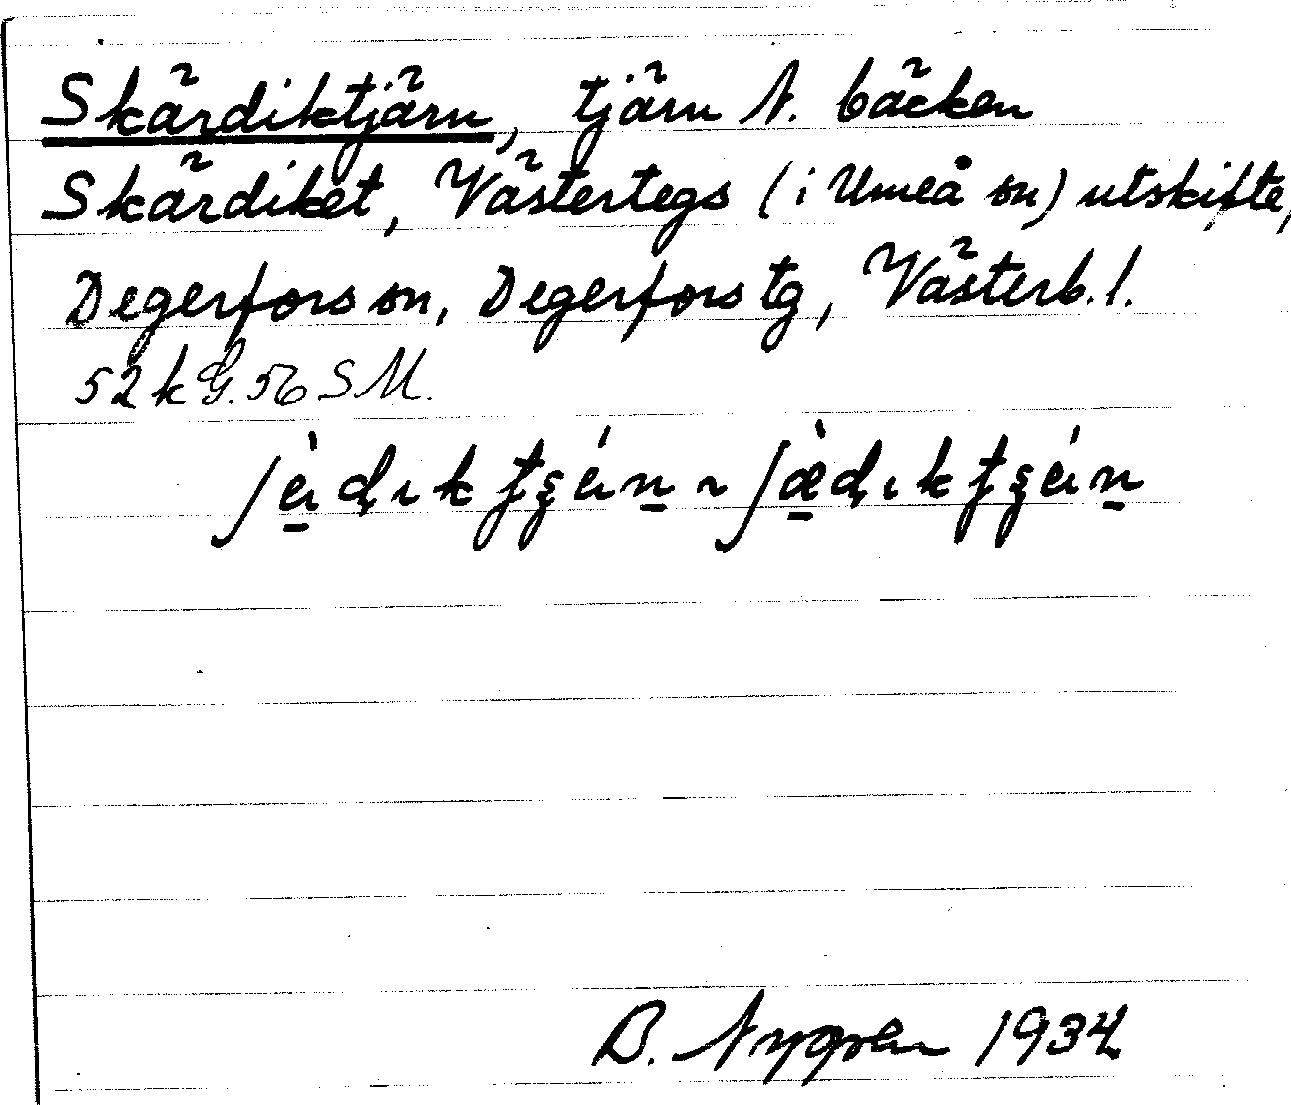 Skärdiktjärn, tjärn N. bäcken
Skärdiket, Västertegs (i Umeå sn) utskifte,
Degerfors sn, Degerfors tg, Västerb. l.
52 k G. 56 SM.
B. Nygren 1934